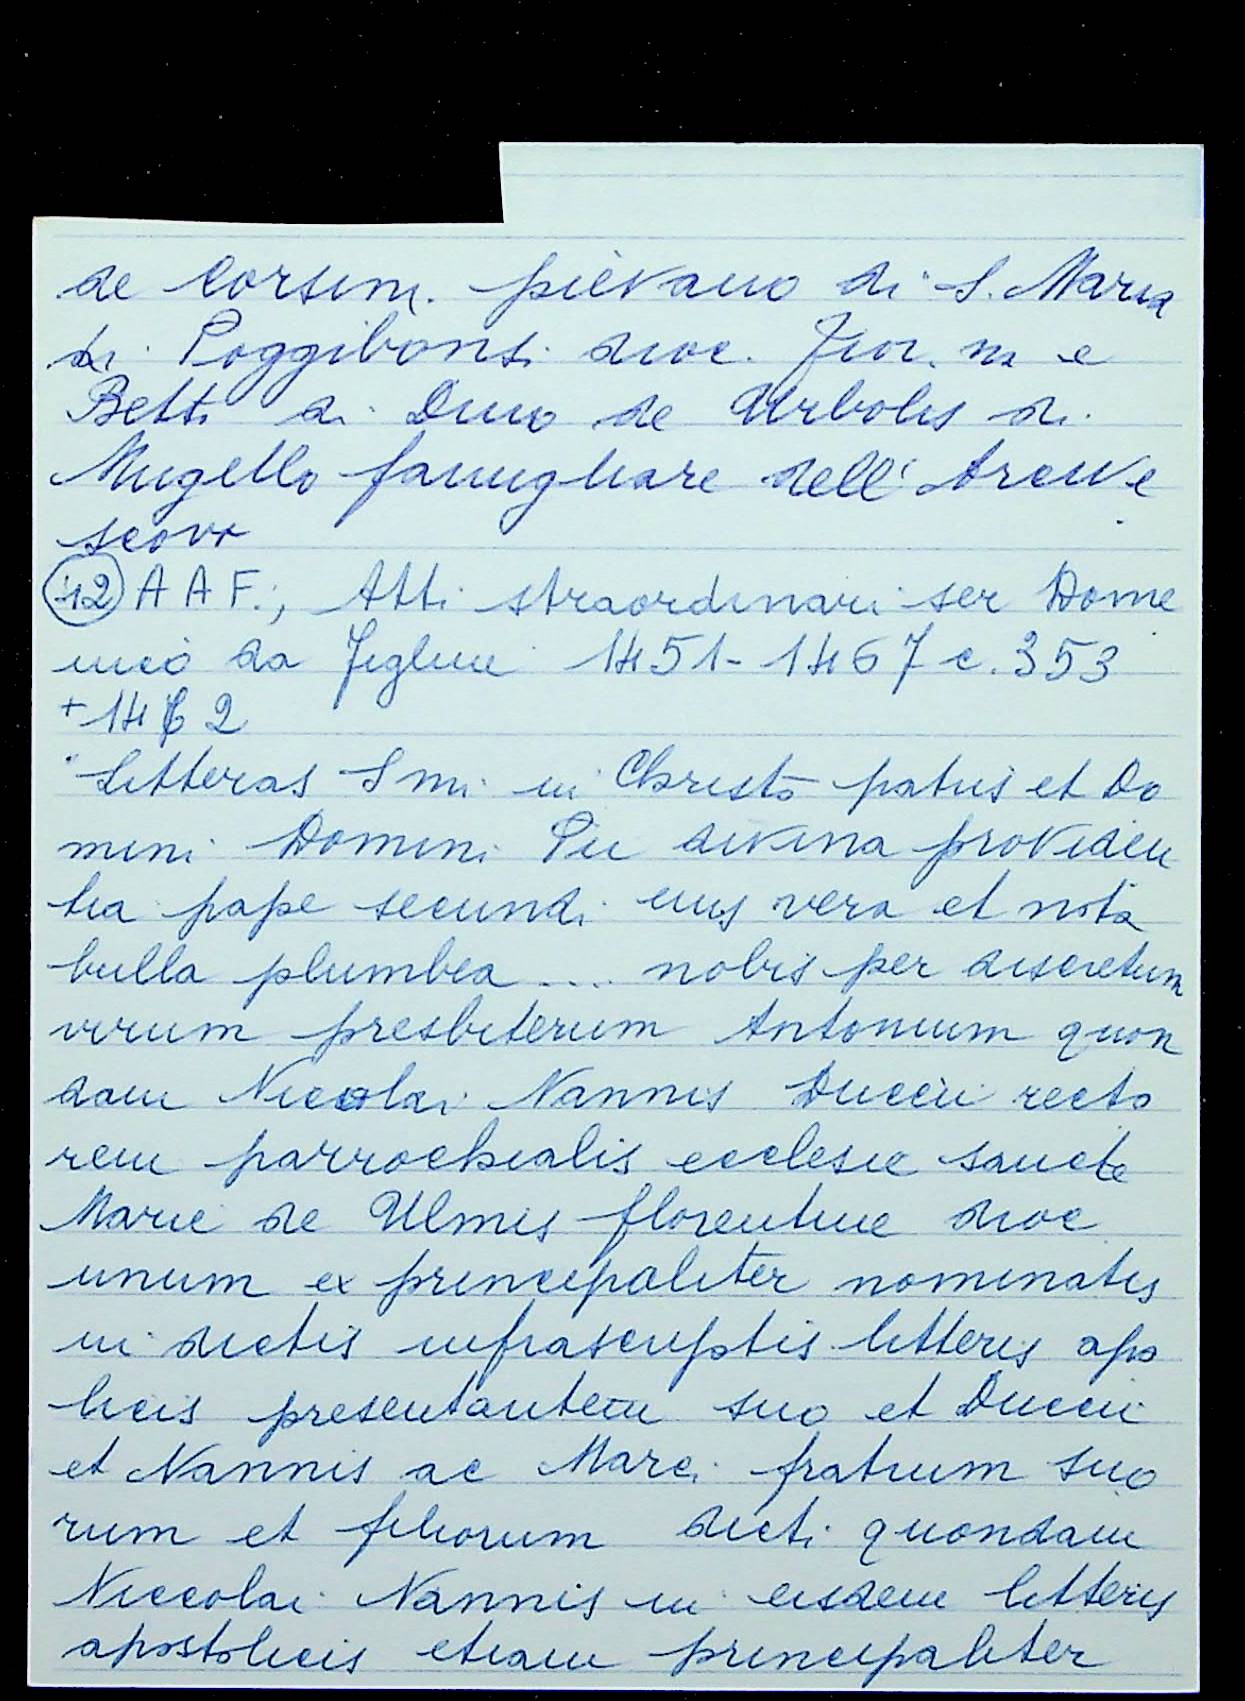 de Corsini. pievano di S. Maria
di Poggibonsi dioc. Fior. na e
Betti di Dino de Urbolis di
Mugello famigliare dell' Arcive
scovo
(42) A A F., Atti straordinari ser Dome
nico da Figline 1451-1467 c. 353
+ 1462
"Litteras Smi in Christo patris et Do
mini Domini Pii divina providen
tia pape secundi eius vera et nota
bulla plumbea .... nobis per discretum
virum presbiterum Antonium quon
dam Niccolai Nannis Duccii recto
rem parrochialis ecclesie sancte
Marie de Ulmis florentine dioc
unum ex principaliter nominatis
in dictis infrascriptis litteris apo
licis presentantem suo et Duccii
et Nannis ac Marci fratrum suo
rum et filiorum dicti quondam
Niccolai Nannis in eisdem litteris
apostolicis etiam principaliter